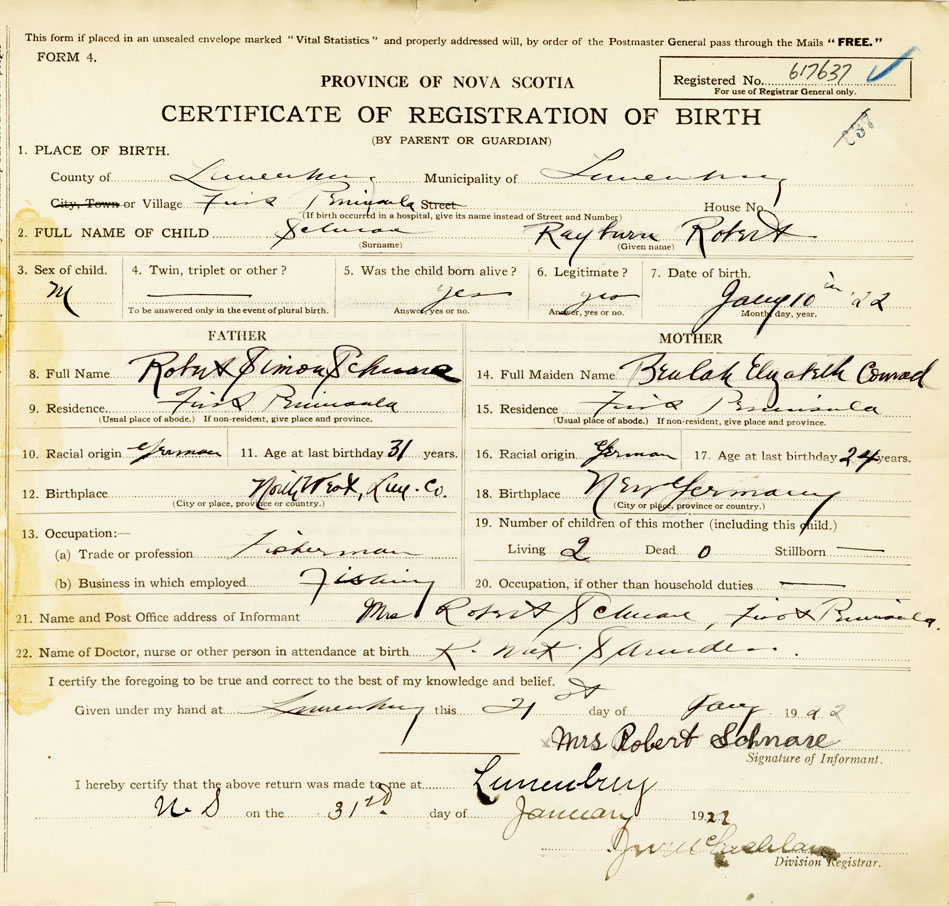 This form if placed in an unsealed envelope marked "Vital Statistics" and properly addressed will, by order of the Postmaster General pass through the Mails "FREE."
FORM 4.
Registered No. 617637
For use of Registrar General only.
PROVINCE OF NOVA SCOTIA
CERTIFICATE OF REGISTRATION OF BIRTH
(BY PARENT OR GUARDIAN)
637
1. PLACE OF BIRTH.
County of Lunenburg Municipality of Lunenburg
City, Town or Village First Peninsula Street House No.
(If birth occurred in a hospital, give its name instead of Street and Number)
2. FULL NAME OF CHILD Schnare Rayburn Robert
(Surname) (Given name)
3. Sex of child. 4. Twin, triplet or other? 5. Was the child born alive? 6. Legitimate? 7. Date of birth.
M — yes yes Jany 10th '22
To be answered only in the event of plural birth. Answer, yes or no. Answer, yes or no. Month, day, year.
FATHER MOTHER
8. Full Name Robert Simon Schnare 14. Full Maiden Name Beulah Elizabeth Conrad
9. Residence. First Peninsula 15. Residence First Peninsula
(Usual place of abode.) If non-resident, give place and province. (Usual place of abode.) If non-resident, give place and province.
10. Racial origin German 11. Age at last birthday 31 years. 16. Racial origin German 17. Age at last birthday 24 years.
12. Birthplace North West, Lun. Co. 18. Birthplace New Germany
(City or place, province or country.) (City or place, province or country.)
19. Number of children of this mother (including this child.)
13. Occupation:—
(a) Trade or profession Fisherman Living 2 Dead 0 Stillborn —
(b) Business in which employed Fishing 20. Occupation, if other than household duties —
21. Name and Post Office address of Informant Mrs Robert Schnare, First Peninsula.
22. Name of Doctor, nurse or other person in attendance at birth R. Saunders.
I certify the foregoing to be true and correct to the best of my knowledge and belief.
Given under my hand at Lunenburg this 21st day of Jany 1922
Mrs Robert Schnare
Signature of Informant.
I hereby certify that the above return was made to me at Lunenburg
N S on the 31st day of January 1922
Division Registrar.